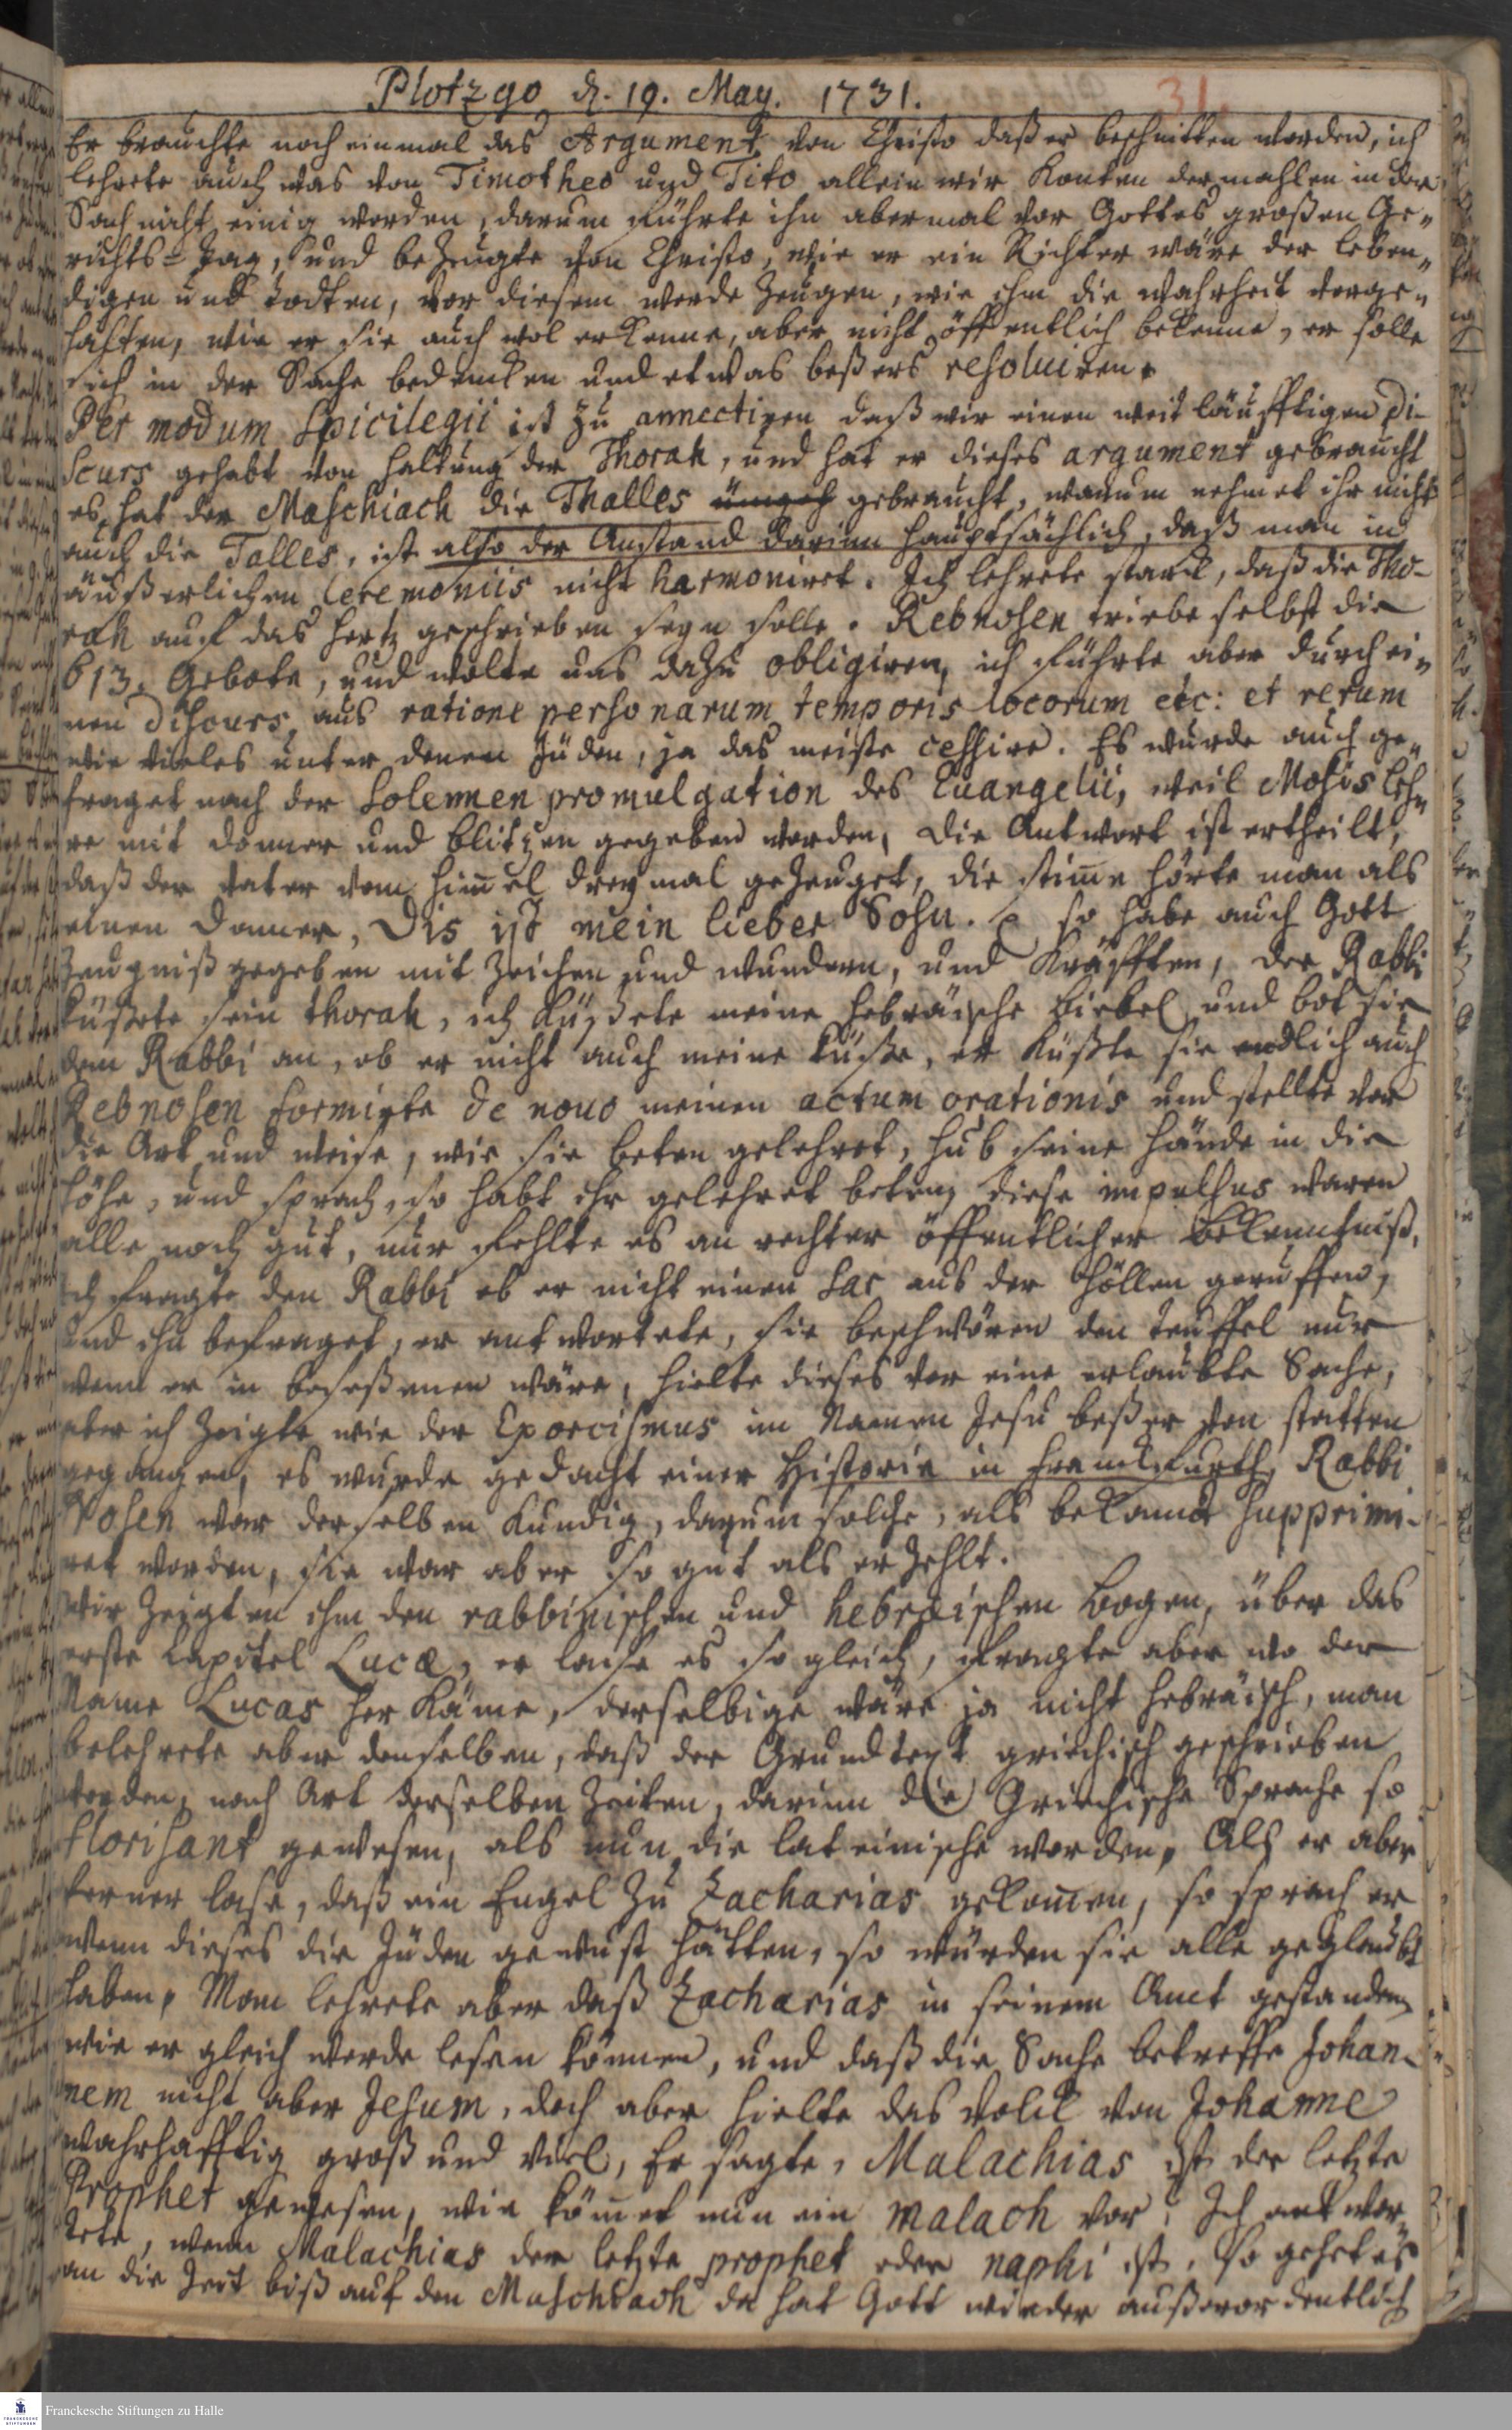 Plotzgo d. 19. May. 1731.
31.
Er brauchte noch einmal das Argument von Christo daß er beschnitten worden, ich
lehrete auch was von Timotheo und Tito allein wir konten dermahlen in der
Sach nicht einig werden, darum führte ihn abermal vor Gottes großen Ge„
richts-Tag, und bezeugte von Christo, wie er ein Richter wäre der leben„
digen und todten, vor diesem werde zeugen, wie ihm die wahrheit vorge„
halten, wie er sie auch wol erkenne, aber nicht öffentlich bekenne, er solle
sich in der Sache bedencken und etwas beßers resolviren.
Per modum Spicilegii ist zu annectiren daß wir einen weitläufftigen Di-
scurs gehabt von haltung der Thorah, und hat er dieses argument gebraucht
es hat der Maschiach die Thalles gebraucht, warum nehmet ihr nicht
auch die Talles, ist also der Anstand darinn hauptsächlich, daß man in
äußerlichen Ceremoniis nicht harmoniret. Ich lehrete starck, daß die Tho-
rah auf das Hertz geschrieben seyn solle. Rebnosen triebe selbst die
613. Gebote, und wolte uns dazu obligiren, ich führte aber durch ei„
nen Discurs aus ratione personarum temporis locorum etc: et rerum
wie vieles unter denen Jüden, ja das meiste cessire. Es wurde auch ge„
fraget nach der Solennen promulgation des Evangelii, weil Mosis Leh„
re mit donner und blitzen gegeben worden, die Antwort ist ertheilt,
daß der Vater vom himmel dreymal gezeuget, die stimme hörte man als
einen donner, Dis ist mein lieber Sohn. so habe auch Gott
Zeugniß gegeben mit Zeichen und wundern, und Kräfften, der Rabbi
küßete sein thorah, ich küßete meine hebräische Biebel und bot sie
dem Rabbi an, ob er nicht auch meine küße, er küßte sie endlich auch
Rebnosen formirte de novo meinen actum orationis und stellte vor
die Art und weise, wie sie beten gelehret, hub seine hände in die
höhe, und sprach, so habt ihr gelehret beten, diese impulsus waren
alle noch gut, nur fehlte es an rechter öffentlicher Bekenntnuß,
ich fragte den Rabbi ob er nicht einen Sar aus der Höllen geruffen,
und ihn befraget, er antwortete, sie beschwören den teuffel nur
wenn er in beseßenen wäre, hielte dieses vor eine erlaubte Sache,
aber ich zeigte wie der Exorcismus im Namen Jesu beßer von statten
gegangen, es wurde gedacht einer Historie in Franckfurth, Rabbi
Nosen war derselben kundig, darum solche, als bekannt supprimi-
ret worden, sie war aber so gut als erzehlt.
Wir zeigten ihm den rabbinischen und hebreischen Bogen, über das
erste Capitel Lucæ, er lase es so gleich, fragte aber wo der
Name Lucas her käme, derselbige wäre ja nicht hebräisch, man
belehrete aber denselben, daß der Grundtext griechisch geschrieben
worden, nach Art derselben Zeiten, darinn die Griechische Sprache so
florisant gewesen, als nun die lateinische worden. Als er aber
ferner lase, daß ein Engel zu Zacharias gekommen, so sprach er
wenn dieses die Jüden gewust hätten, so würden sie alle geglaubt
haben. Man lehrete aber daß Zacharias in seinem Amt gestanden
wie er gleich werde lesen können, und daß die Sache betreffe Johan-
nem nicht aber Jesum, doch aber hielte das Volck von Johanne
wahrhafftig groß und viel, Er sagte, Malachias ist der letzte
Prophet gewesen, wie kömmet nun ein malach vor; Ich antwor„
tete, wenn Malachias der letzte prophet oder naphi ist, so gehet es
an die Zeit biß auf den Maschiach da hat Gott wieder außerordentlich
Franckesche Stiftungen zu Halle